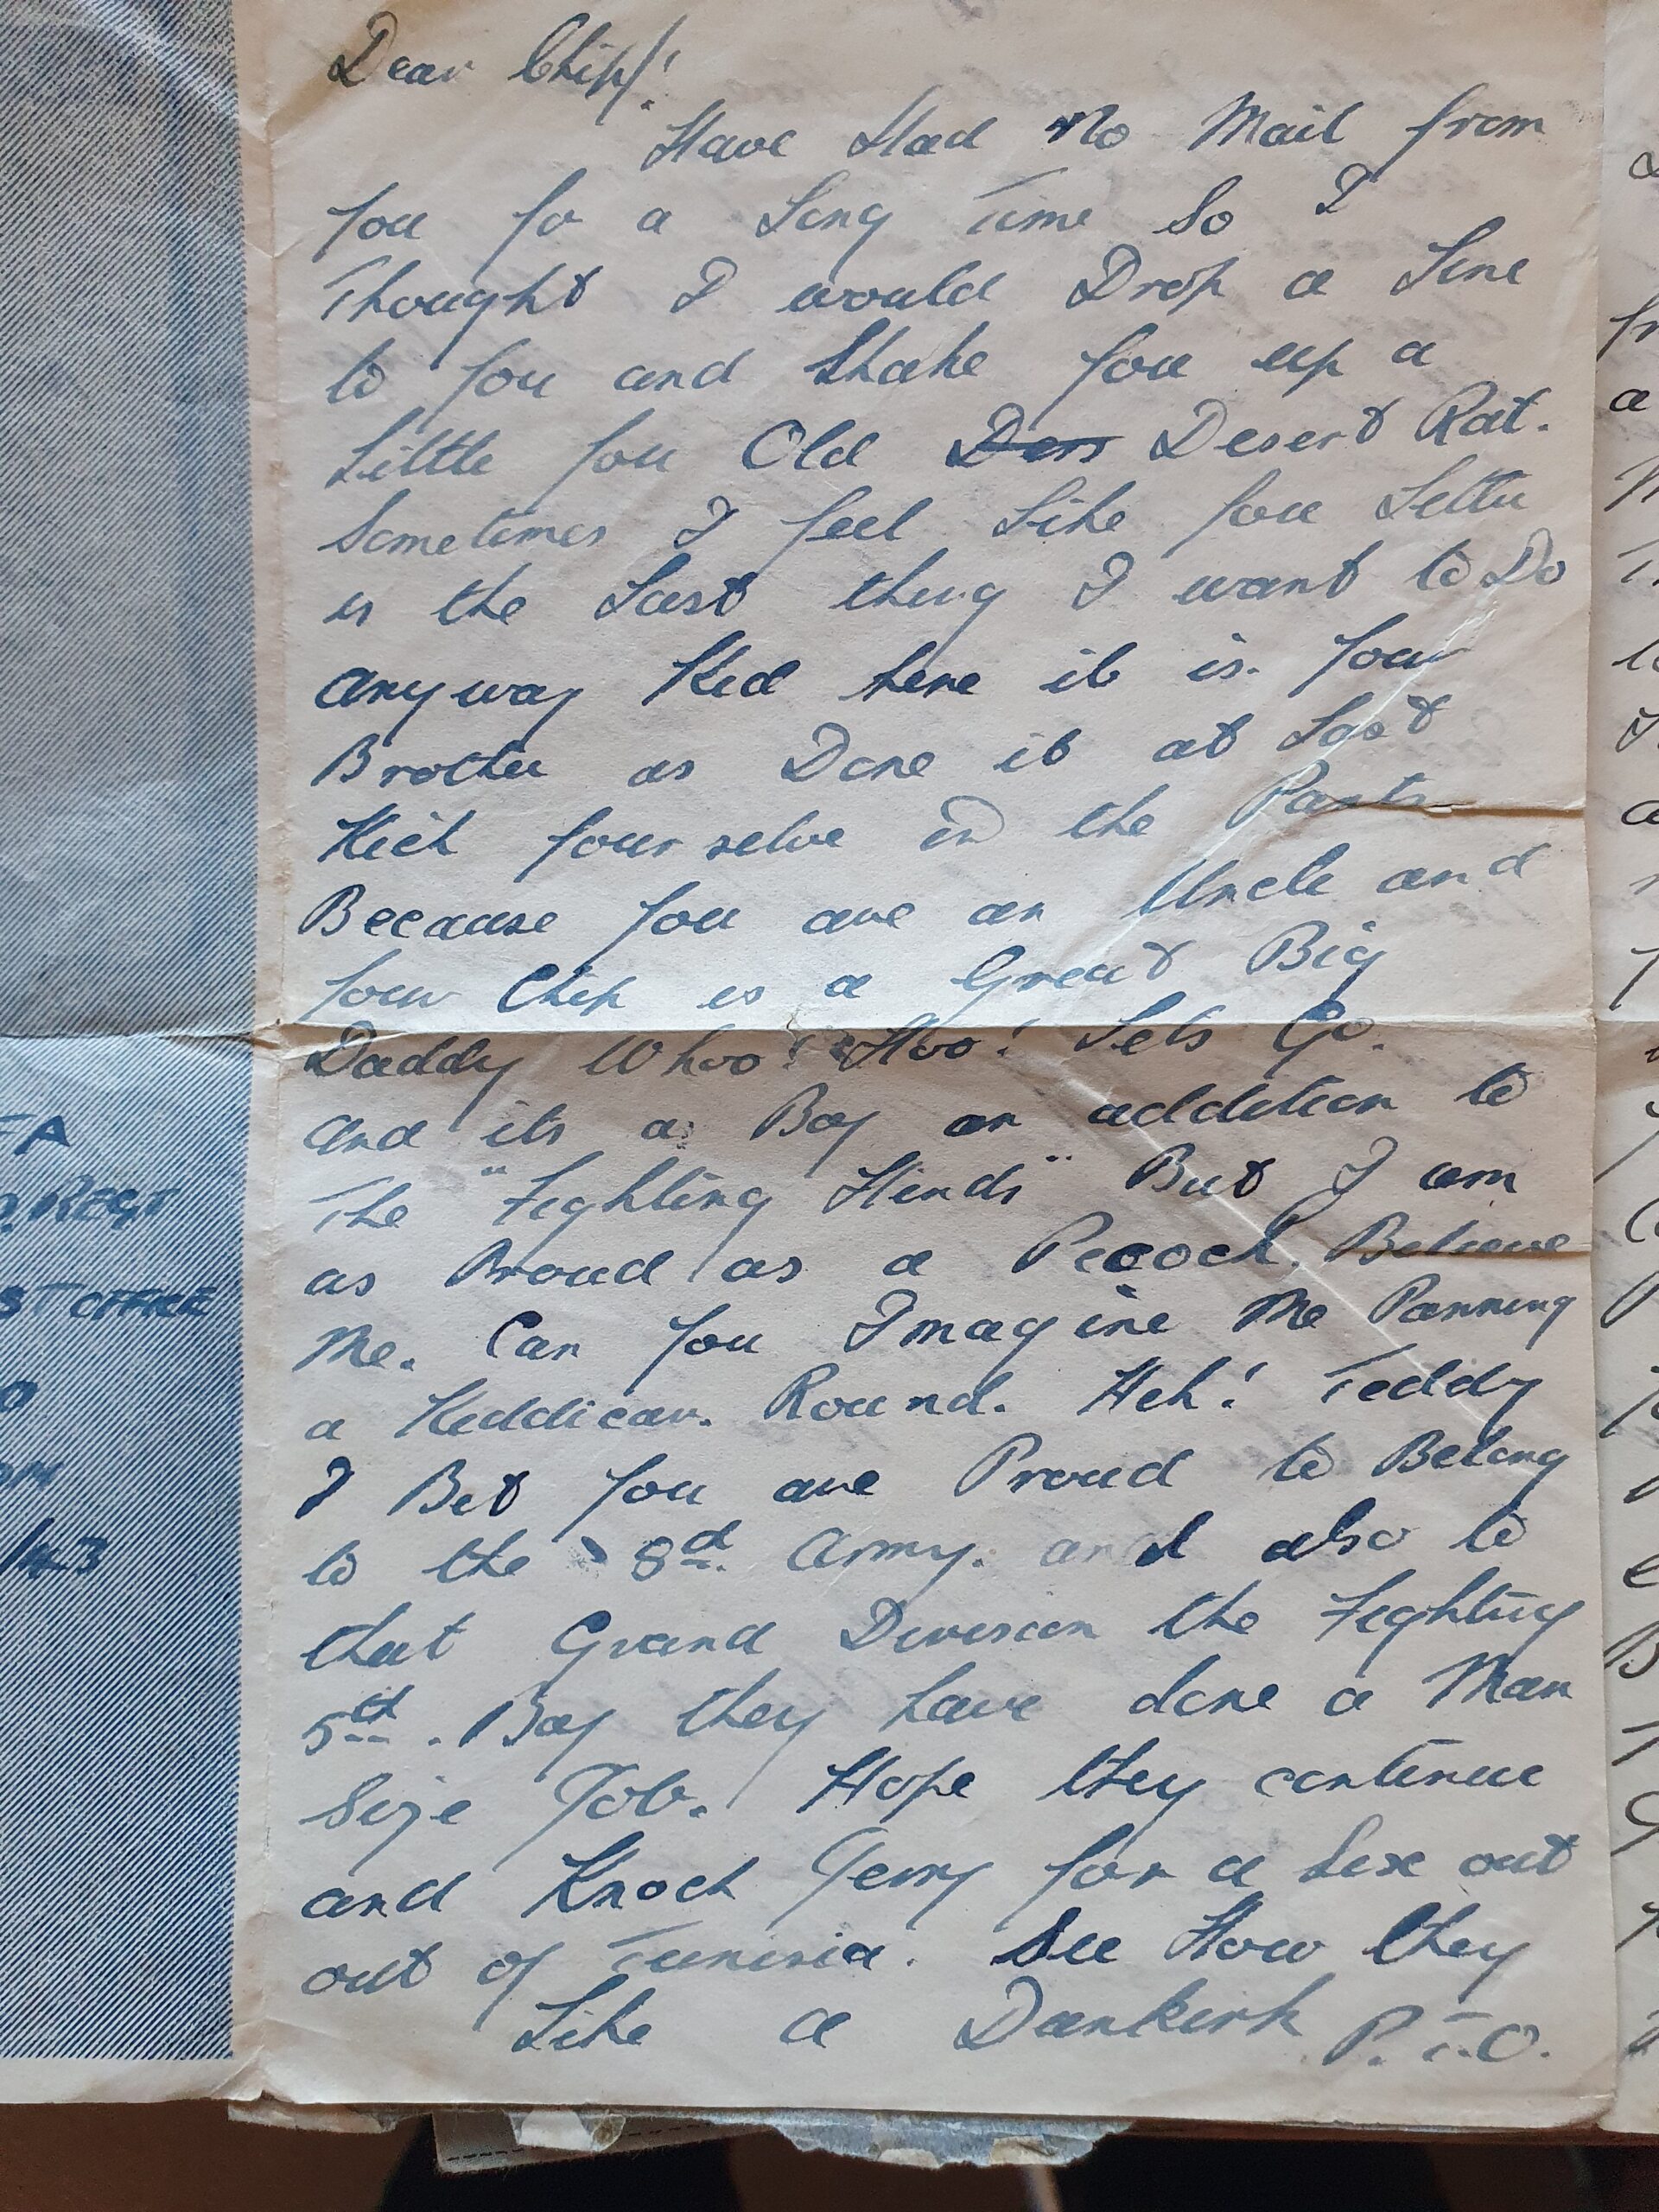 Dear Chip!
Have Had No Mail from
you fo a Long Time So I
Thought I would Drop a Line
to you and Shake you up a
Little you Old Ders Desert Rat.
Sometimes I feel Like you Letter
is the Last thing I want to Do
anyway Kid here it is. Your
Brother as Done it at Last
Kick yourselve in the Pants
Because you are an Uncle and
your Chip is a Great Big
Daddy Whoo! Hoo! Lets Go.
and its a Boy an addition to
The "Fighting Hinds" But I am
as Proud as a Pecock. Believe
Me. Can you Imagine Me Panning
a Keddicar. Round. Heh! Teddy
I Bet you are Proud to Belong
to the 8th Army. and also to
that Grand Division the Fighting
5th. Boy they have done a Man
Size Job. Hope they continue
and Knock Jerry for a Six out
out of Tunisia. See How they
Like a Dunkirk P.T.O.
FA
REGT
ST OFFICE
/43